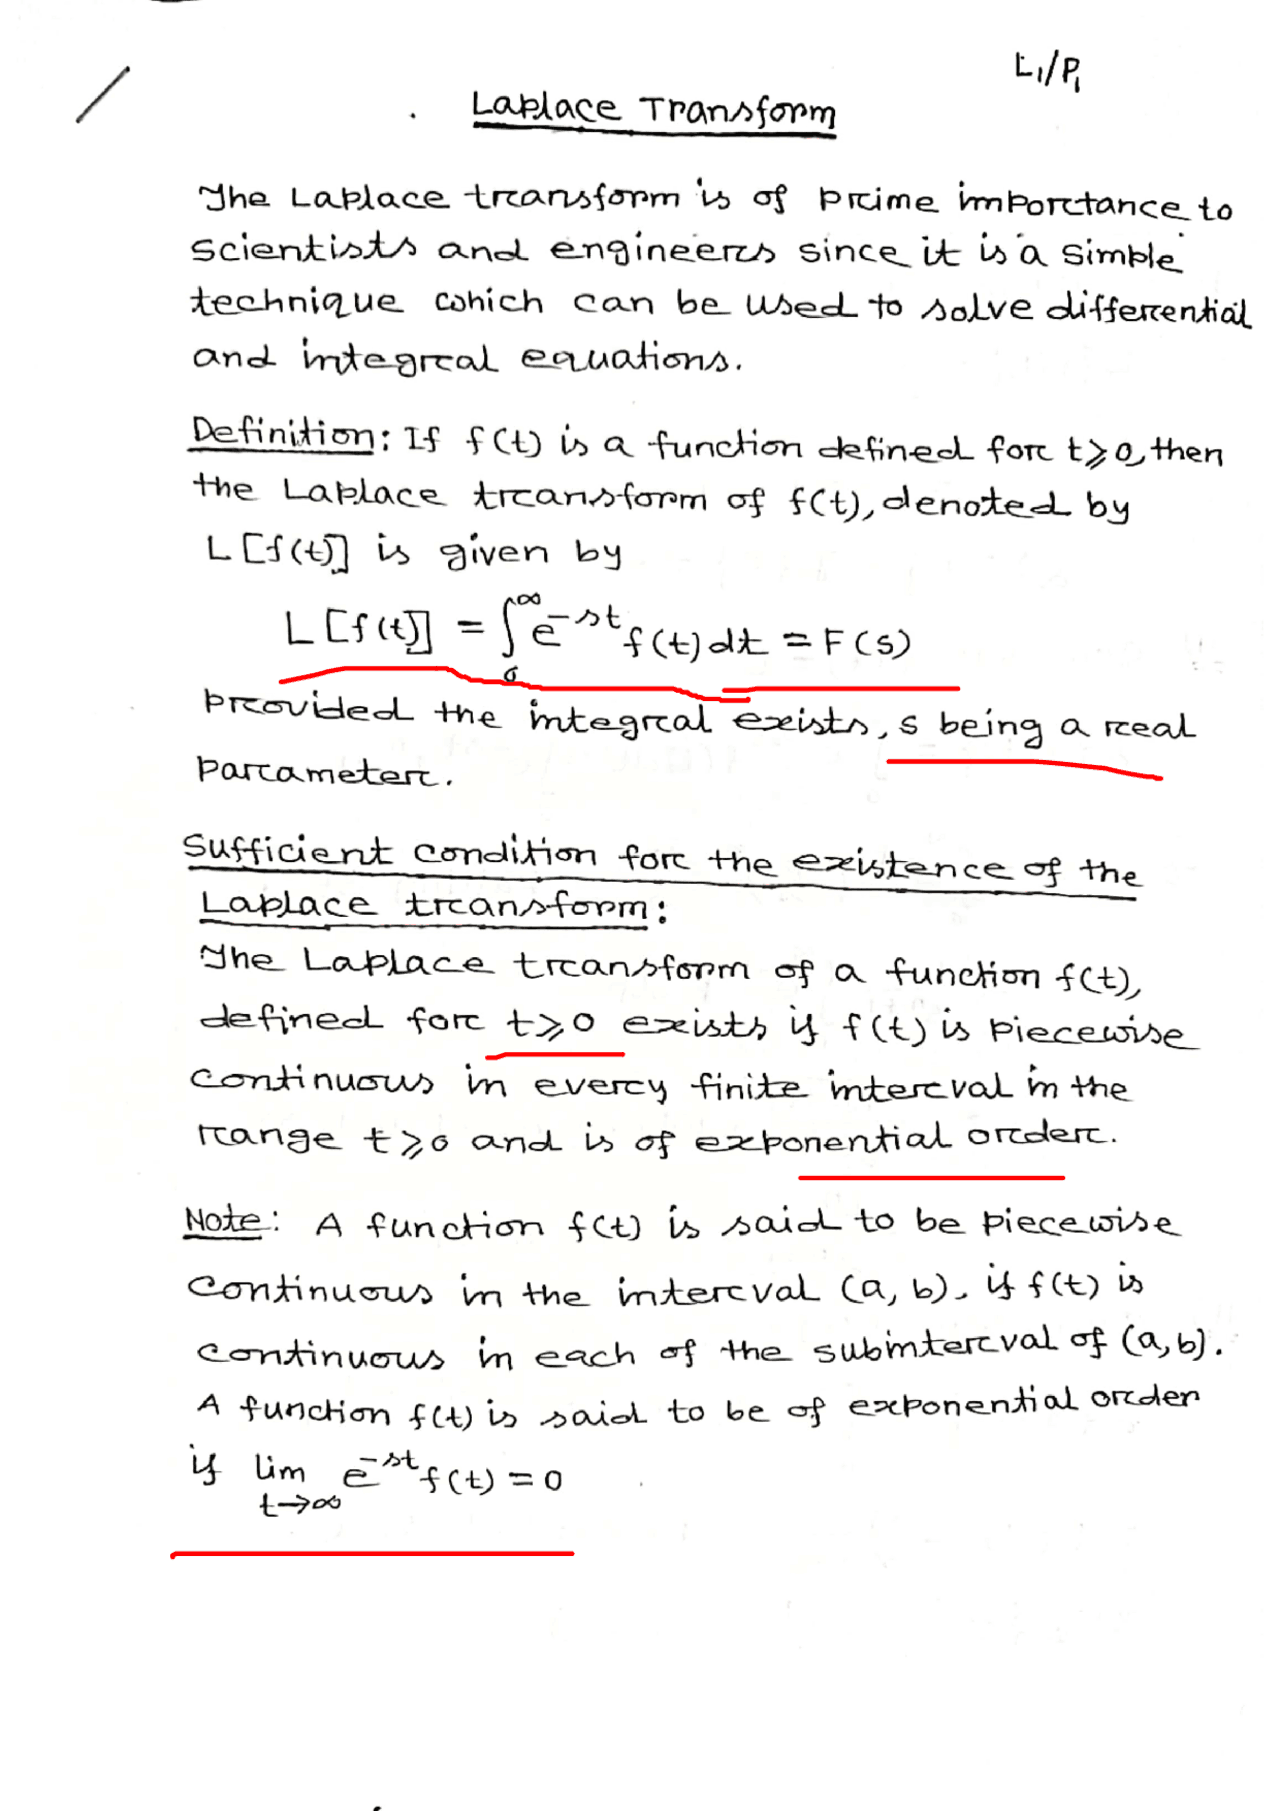 L₁/P₁
Laplace Transform
The Laplace transform is of prime importance to
scientists and engineers since it is a simple
technique which can be used to solve differential
and integral equations.
Definition: If f(t) is a function defined for t⩾0, then
the Laplace transform of f(t), denoted by
L[f(t)] is given by
L[f(t)] = ∫₀^∞ e^{-st} f(t) dt = F(s)
provided the integral exists, s being a real
parameter.
Sufficient condition for the existence of the
Laplace transform:
The Laplace transform of a function f(t),
defined for t⩾0 exists if f(t) is piecewise
continuous in every finite interval in the
range t⩾0 and is of exponential order.
Note: A function f(t) is said to be piecewise
continuous in the interval (a, b), if f(t) is
continuous in each of the subinterval of (a,b).
A function f(t) is said to be of exponential order
if lim_{t→∞} e^{-st} f(t) = 0